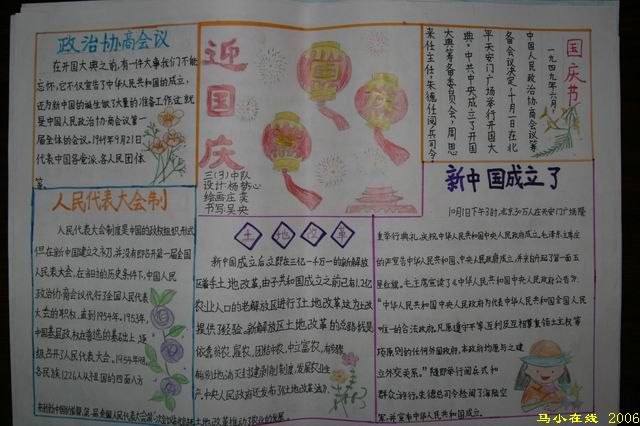 政治协商会议
在开国大典之前,有一件大事我们不能
忘怀,它不仅宣告了中华人民共和国的成立,
还为新中国的诞生做了大量的准备工作,这就
是中国人民政治协商会议第一
届全体的会议。1949年9月21日
代表中国各党派、各人民团体
等。
迎国庆
国庆
三(3)中队
设计 杨梦心
绘画 庄奕
书写 吴央
国庆节
一九四九年六月,
中国人民政治协商会议筹
备会议决定,十月一日在北
平天安门广场举行开国大
典,中共中央成立了开国
大典筹备委员会,周恩
来任主任,朱德任阅兵司令
人民代表大会制
人民代表大会制度是中国的政权组织形式
但在新中国建立之初,并没有即召开第一届全国
人民大会,在当时的历史条件下,中国人民
政治协商会议代行了全国人民代表
大会的职权,直到1954年。1953年,
中国基层政权在普选的基础上,逐
级召开了人民代表大会。1954年9月
各民族1226人从祖国的四面八方
土地改革
新中国成立后立即在三亿一千万的新解放
区着手土地改革,由于共和国成立之前已有1.2亿
农业人口的老解放区进行了土地改革这为土改
提供了经验。新解放区土地改革的总路线是
依靠贫农、雇农,团结中农,中立富农,有步骤
有分别地消灭封建剥削制度,发展农业生
产,中央人民政府还发布了《土地改革法》,
土地改革推动了农业的发展。
新中国成立了
10月1日下午3时,北京30万人在天安门广场隆
重举行典礼,庆祝中华人民共和国中央人民政府成立。毛泽东主席庄
严宣告中华人民共和国、中央人民政府成立,并亲自升起了第一面五
星红旗。毛主席宣读了《中华人民共和国中央人民政府公告》:
“中华人民共和国中央人民政府为代表中华人民共和国全国人民
唯一的合法政府。凡愿遵守平等、互利及互相尊重领土主权等
项原则的任何外国政府,本政府均愿与之建
立外交关系。”随即举行阅兵式和
群众游行。朱德总司令检阅了海陆空
军,并宣布中华人民共和国成立。
马小在线 2006